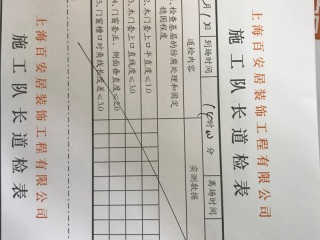 上海百安居装饰工程有限公司
施工队长道检表
月1日 到场时间 时 分 离场时间
道检内容 实测数据
1.检查基层的防腐处理和固定
稳固程度
2.木门套上口平直度≤1.0
3.木门套上口直线度≤3.0
4.门窗套正、侧面垂直度≤2.0
5.门窗槽口对角线长度差≤3.0
上海百安居装饰工程有限公司
施工队长道检表